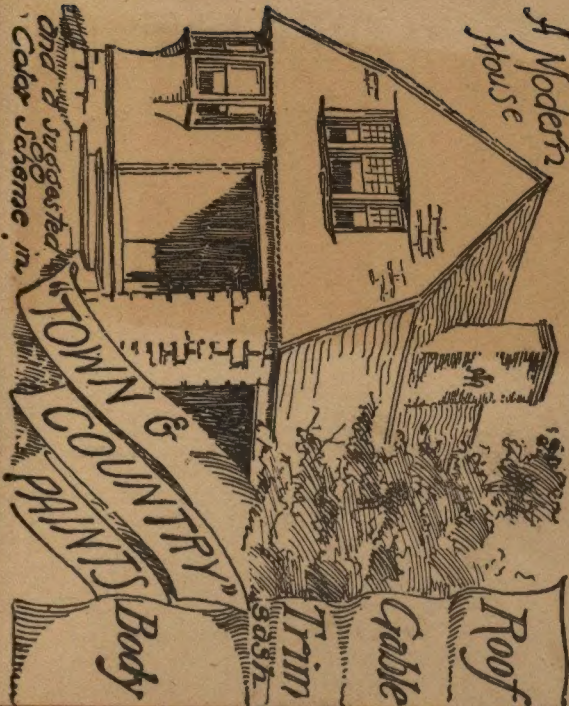 A Modern
House
and a suggested
Color Scheme in
"TOWN &
COUNTRY"
PAINTS
Roof
Gable
Trim
Sash
Body